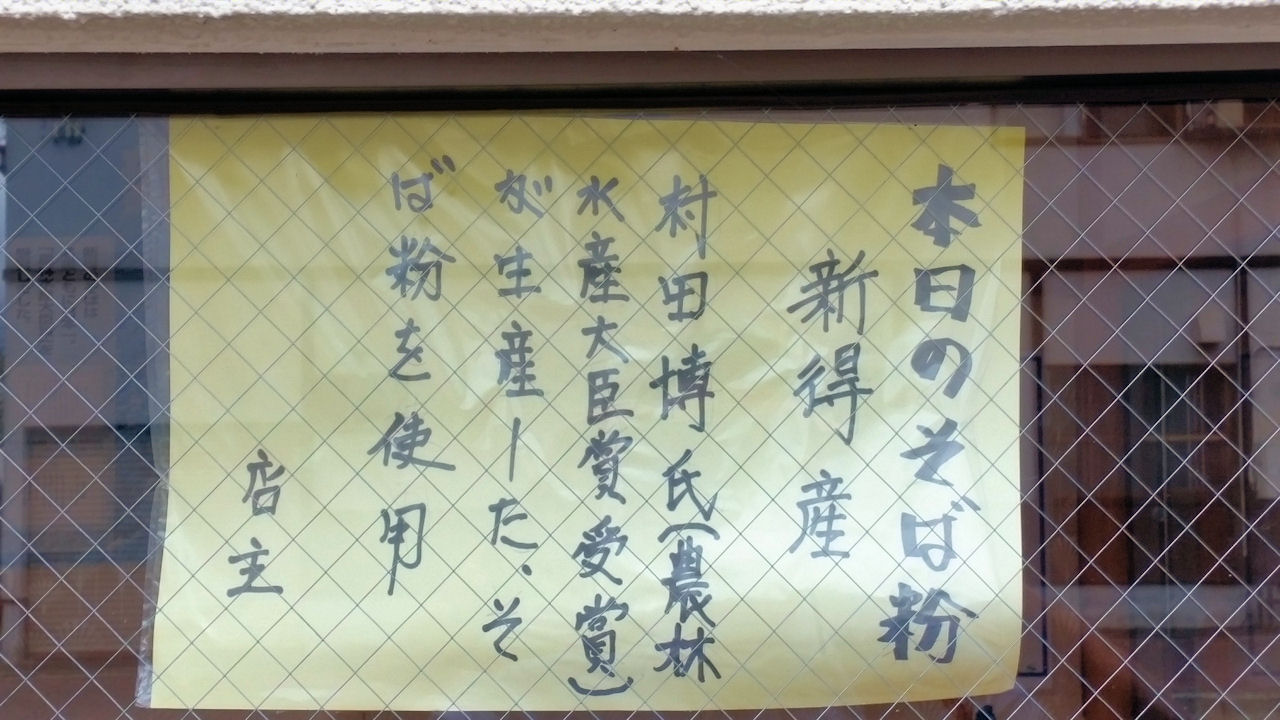 本日のそば粉
新得産
村田博氏(農林
水産大臣賞受賞)
が生産した、そ
ば粉を使用
店主